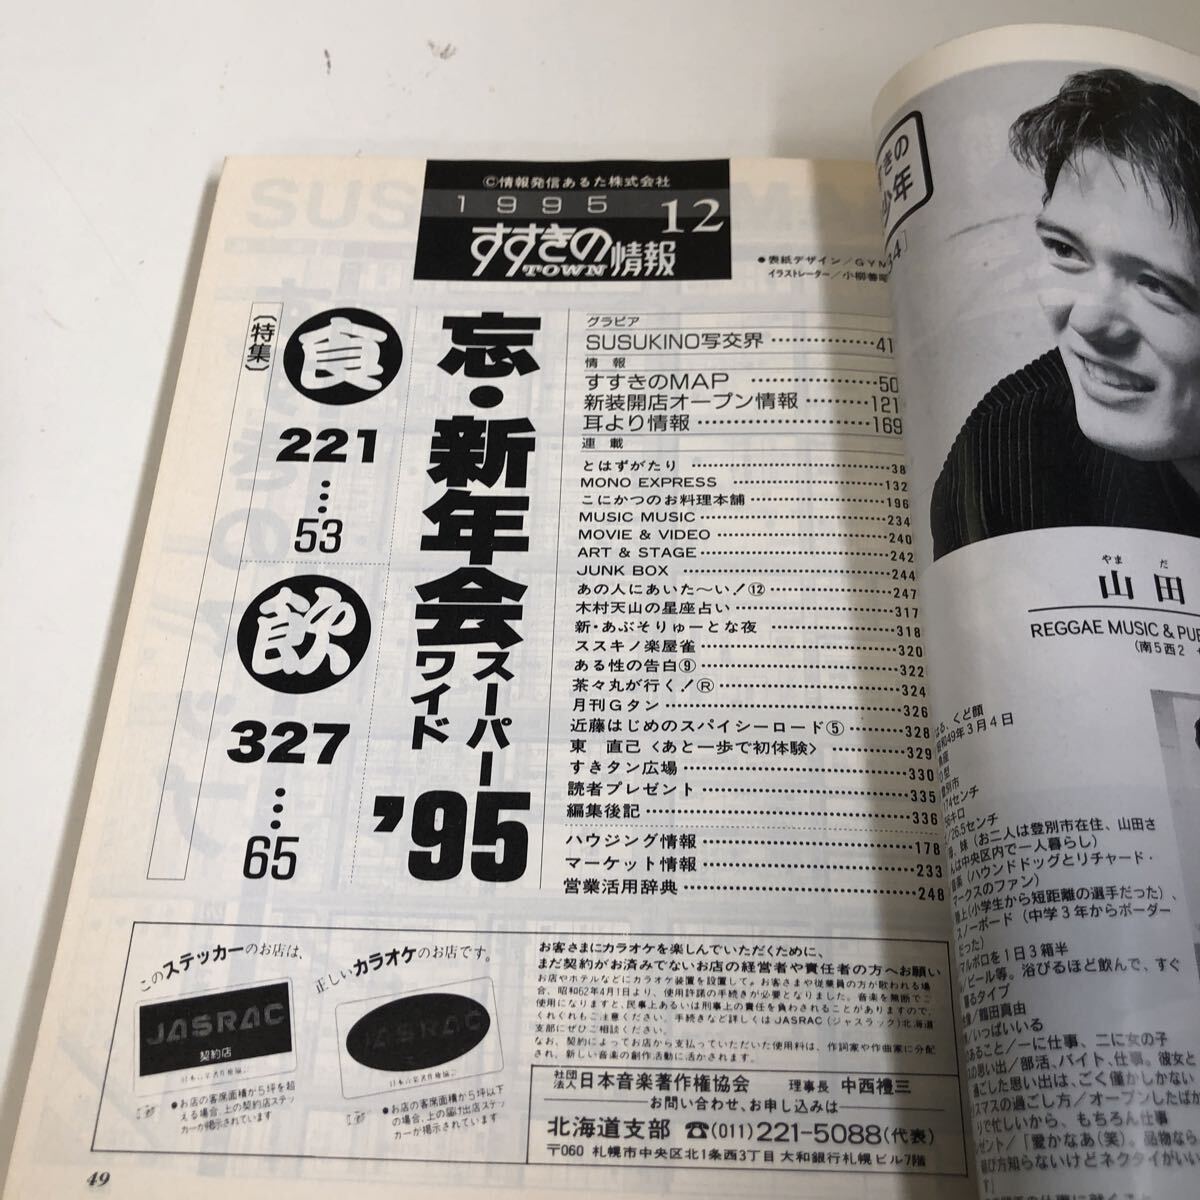 ©情報発信あるた株式会社
1995 12
すすきの情報
TOWN
●表紙デザイン/GYM
イラストレーター/小柳善
〔特集〕
食
221
53
飲
327
65
忘・新年会
スーパー
ワイド
'95
グラビア
SUSUKINO写交界 41
情報
すすきのMAP 50
新装開店オープン情報 121
耳より情報 169
連載
とはずがたり 38
MONO EXPRESS 132
こにかつのお料理本舗 196
MUSIC MUSIC 234
MOVIE & VIDEO 240
ART & STAGE 242
JUNK BOX 244
あの人にあいた〜い!⑫ 247
木村天山の星座占い 317
新・あぶそりゅーとな夜 318
ススキノ楽屋雀 320
ある性の告白⑨ 322
茶々丸が行く!Ⓡ 324
月刊Gタン 326
近藤はじめのスパイシーロード⑤ 328
東 直己〈あと一歩で初体験〉 329
すきタン広場 330
読者プレゼント 335
編集後記 336
ハウジング情報 178
マーケット情報 233
営業活用辞典 248
このステッカーのお店は、
正しいカラオケのお店です。
JASRAC
契約店
日本音楽著作権協会
●お店の客席面積が5坪を超
える場合、上の契約店ステッ
カーが掲示されています
JASRAC
日本音楽著作権協会
●お店の客席面積が5坪以下
の場合、上の届け出店ステッ
カーが掲示されています
お客さまにカラオケを楽しんでいただくために、
まだ契約がお済みでないお店の経営者や責任者の方へお願い
お店やホテルなどにカラオケ装置を設置して。お客さまや従業員の方が歌われる場
合、昭和62年4月1日より、使用許諾の手続きが必要となりました。音楽を無断でご
使用になりますと、民事上あるいは刑事上の責任を負わされることがありますので、
くれぐれもご注意ください。手続きなど詳しくはJASRAC(ジャスラック)北海道
支部にぜひご相談ください。
なお、契約によってお店から支払っていただいた使用料は、作詞家や作曲家に分配
され、新しい音楽の創作活動に活かされます。
社団法人日本音楽著作権協会 理事長 中西禮三
お問い合わせ、お申し込みは
北海道支部 ☎(011)221-5088(代表)
〒060 札幌市中央区北1条西3丁目 大和銀行札幌ビル7階
49
すきの
少年
34〕
やま だ
山田
REGGAE MUSIC & PU
(南5西2
はる、くど顔
昭和49年3月4日
魚座
O型
登別市
174センチ
キロ
/26.5センチ
、妹(お二人は登別市在住、山田さ
んは中央区内で一人暮らし)
音楽(ハウンドドッグとリチャード・
マークスのファン)
陸上(小学生から短距離の選手だった)、
スノーボード(中学3年からボーダー
だった)
マルボロを1日3箱半
/ビール等。浴びるほど飲んで、すぐ
寝るタイプ
/鶴田真由
/いっぱいいる
あること/一に仕事、二に女の子
の思い出/部活、バイト、仕事。彼女と
過ごした思い出は、ごく僅かしかない
リスマスの過ごし方/オープンしたばか
りで忙しいから、もちろん仕事
ゼント/「愛かなあ(笑)。品物なら
結び方知らないけどネクタイがいい
す」